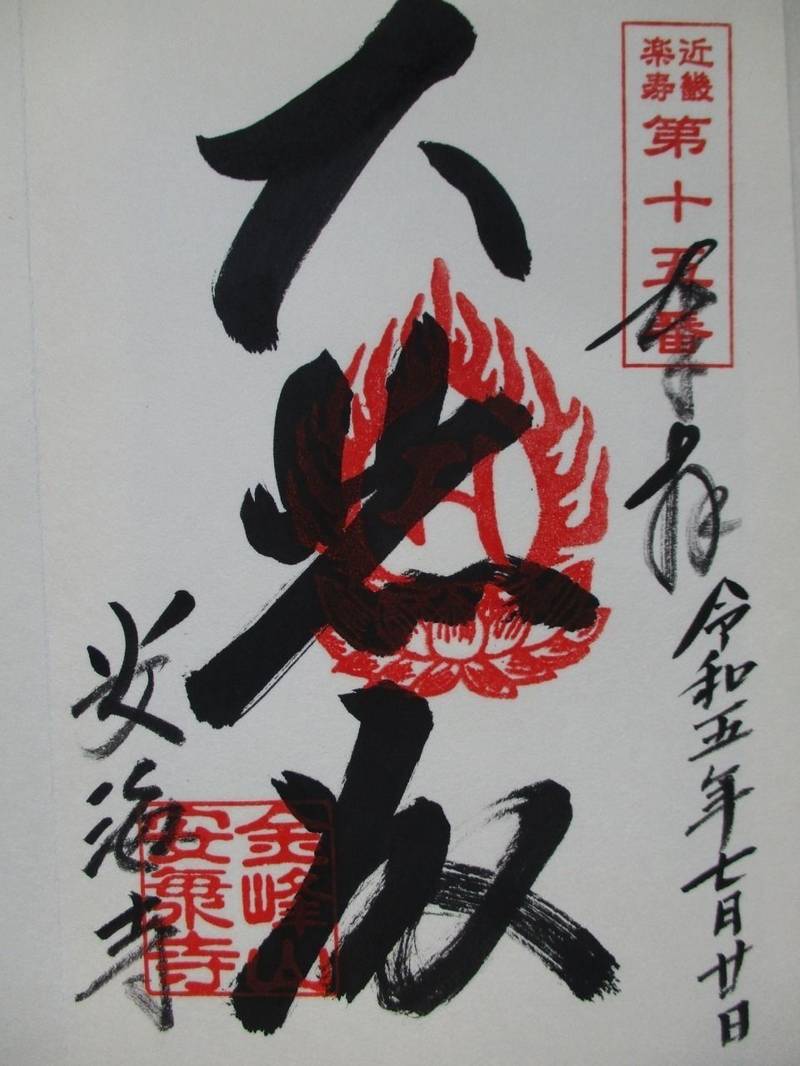 近畿
楽寿
第十五番
奉拝
令和五年七月廿日
大悲殿
安海寺
金峰山
安海寺